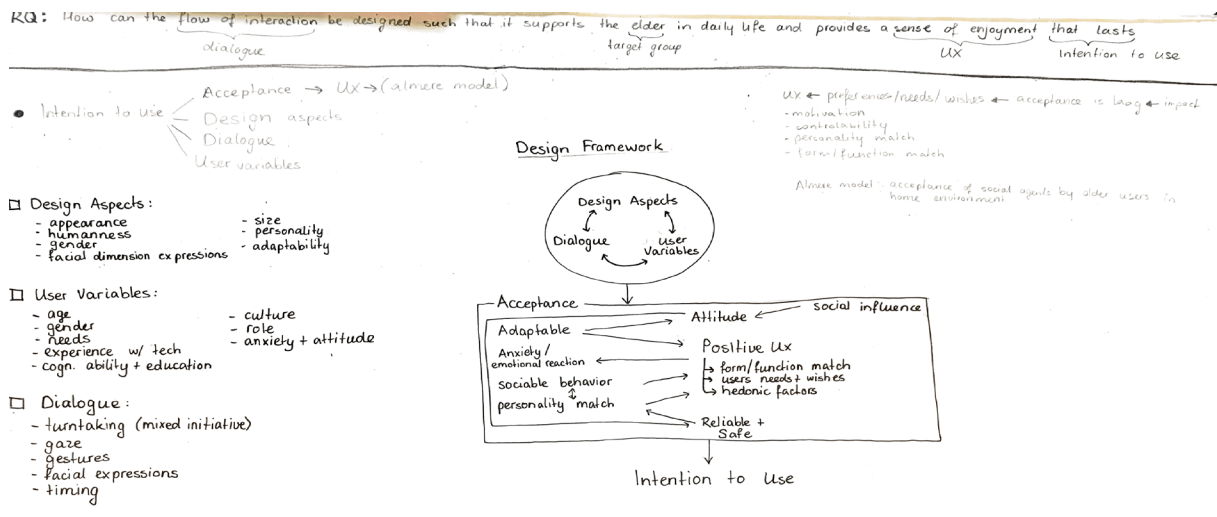 RQ: How can the flow of interaction be designed such that it supports the elder in daily life and provides a sense of enjoyment that lasts
dialogue
target group
UX
Intention to use
Intention to use
Acceptance → UX → (almere model)
Design aspects
Dialogue
User variables
UX ← preferences/needs/wishes ← acceptance is laag ← impact
- motivation
- controlability
- personality match
- form/function match
Almere model: acceptance of social agents by older users in
home environment
Design Aspects:
- appearance
- humanness
- gender
- facial dimension expressions
- size
- personality
- adaptability
User Variables:
- age
- gender
- needs
- experience w/ tech
- cogn. ability + education
- culture
- role
- anxiety + attitude
Dialogue:
- turntaking (mixed initiative)
- gaze
- gestures
- facial expressions
- timing
Design Framework
Design Aspects
Dialogue
User
Variables
Acceptance
social influence
Adaptable
Attitude
Anxiety/
emotional reaction
Positive UX
form/function match
users needs + wishes
hedonic factors
sociable behavior
personality match
Reliable +
Safe
Intention to Use